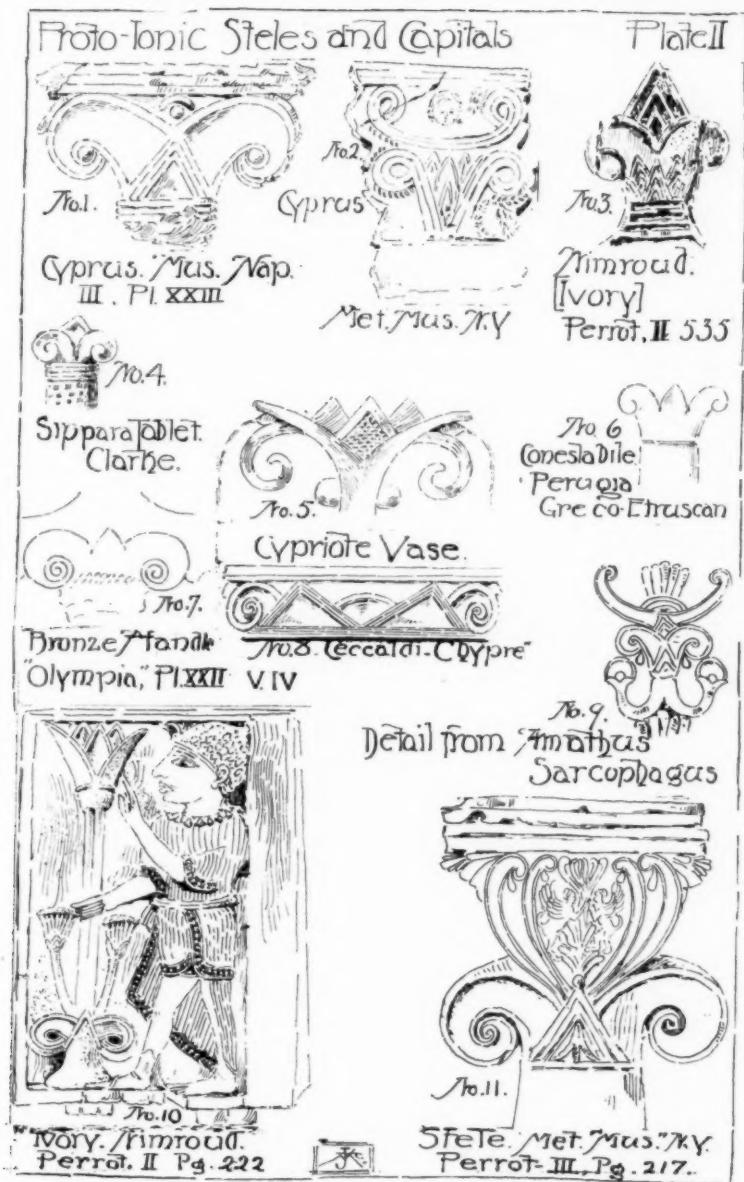 Proto-Ionic Steles and Capitals Plate II
No. 1.
Cyprus. Mus. Nap.
III. Pl. XXIII
No. 2.
Cyprus
Met. Mus. N.Y
No. 3.
Nimroud.
[Ivory]
Perrot, II 535
No. 4.
Sippara Tablet.
Clarke.
No. 5.
Cypriote Vase.
No. 6
Conestabile
Perugia
Greco-Etruscan
No. 7.
Bronze Handle
"Olympia," Pl. XXII V. IV
No. 8. Ceccaldi-Chypre"
No. 9.
Detail from Amathus
Sarcophagus
No. 10
Ivory. Nimroud.
Perrot. II Pg. 222
No. 11.
Stele. Met. Mus. N.Y.
Perrot-III, Pg. 217.